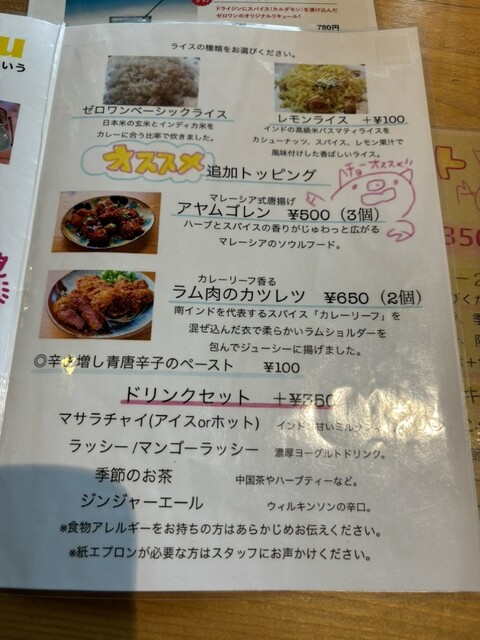 ドライジンにスパイス(カルダモン)を漬け込んだ
ゼロワンのオリジナルリキュール!
780円
いう
ライスの種類をお選びください。
ゼロワンベーシックライス
日本米の玄米とインディカ米を
カレーに合う比率で炊きました。
レモンライス +¥100
インドの高級米バスマティライスを
カシューナッツ、スパイス、レモン果汁で
風味付けした香ばしいライス。
オススメ 追加トッピング
チョーオススメ!!
マレーシア式唐揚げ
アヤムゴレン ¥500(3個)
ハーブとスパイスの香りがじゅわっと広がる
マレーシアのソウルフード。
カレーリーフ香る
ラム肉のカツレツ ¥650(2個)
南インドを代表するスパイス「カレーリーフ」を
混ぜ込んだ衣で柔らかいラムショルダーを
包んでジューシーに揚げました。
◎辛さ増し青唐辛子のペースト ¥100
ドリンクセット +¥350
マサラチャイ(アイスorホット) インド
ラッシー/マンゴーラッシー 濃厚ヨーグルトドリンク。
季節のお茶 中国茶やハーブティーなど。
ジンジャーエール ウィルキンソンの辛口。
※食物アレルギーをお持ちの方はあらかじめお伝えください。
※紙エプロンが必要な方はスタッフにお声かけください。